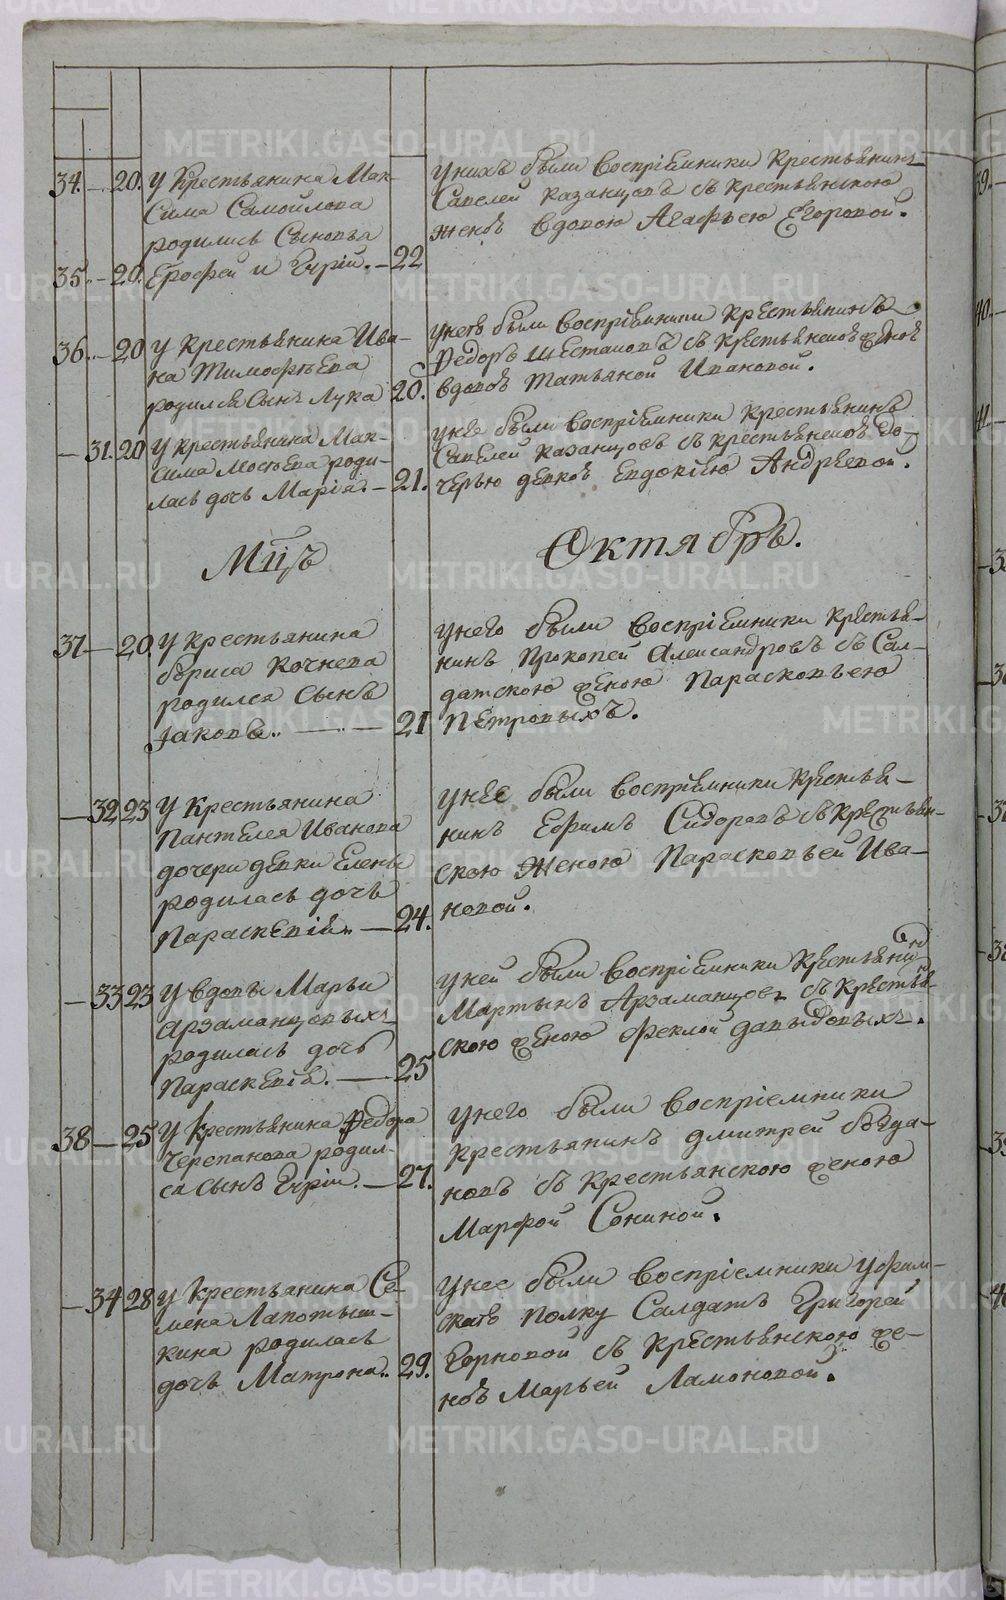 34. 20. У Крестьянина Мак-
сима Самойлова
родились Сыновья
35. 20. Ерофей и Гүрiй. 22
у нихъ были Воспрiемники Крестьянинъ
Савелей Казанцовъ съ крестьянскою
женъ вдовою Агафьею Егоровой.
36. 20 У Крестьянина Ива-
на Тимофѣева
родился Сынъ Лука 20.
у него были Воспрiемники Крестьянинъ
Федоръ Шестаковъ съ Крестьянскоѣ женоѣ
вдовоѣ Татьяной Ивановой.
31. 20 У Крестьянина Мак-
сима Мосѣева роди-
лась дочь Марiя. 21.
у нее были Воспрiемники Крестьянинъ
Савелей Казанцовъ съ Крестьянскоѣ до-
черью девкоѣ Евдокiею Андрѣевой.
Мцъ Октябрь.
37 20. У Крестьянина
бориса Кочнева
родился Сынъ
Iаковъ. 21
у него были Воспрiемники Крестья-
нинъ Прокопей Александровъ съ Сал-
датскою женою Парасковьею
Петровыхъ.
32 23 У Крестьянина
Пантелея Иванова
дочери девки Елены
родилась дочь
Параскевiя. 24.
у нее были Воспрiемники Крестья-
нинъ Ефимъ Сидоровъ съ Крестьян-
скою Женою Парасковьей Ива-
новой.
33 23 У Вдовы Марьи
Арзаманцовыхъ
родилась дочь
Параскевiя. 25
у ней были Воспрiемники Крестьянинъ
Мартынъ Арзаманцовъ съ Крестьян-
скою женою Феклой давыдовыхъ.
38 25 У Крестьянина Федора
Черепанова родил-
ся Сынъ Гүрiй. 27.
у него были Воспрiемники
Крестьянинъ дмитрей богда-
новъ съ Крестьянскою женою
Марфой Сониной.
34 28 У Крестьянина Се-
мена Лапотыш-
кина родилась
дочь Матрона. 29.
у нее были Воспрiемники Уфим-
скагѡ полку Салдатъ Григорей
съ Крестьянскою же-
ноѣ Марьей Ламоновой.
METRIKI.GASO-URAL.RU